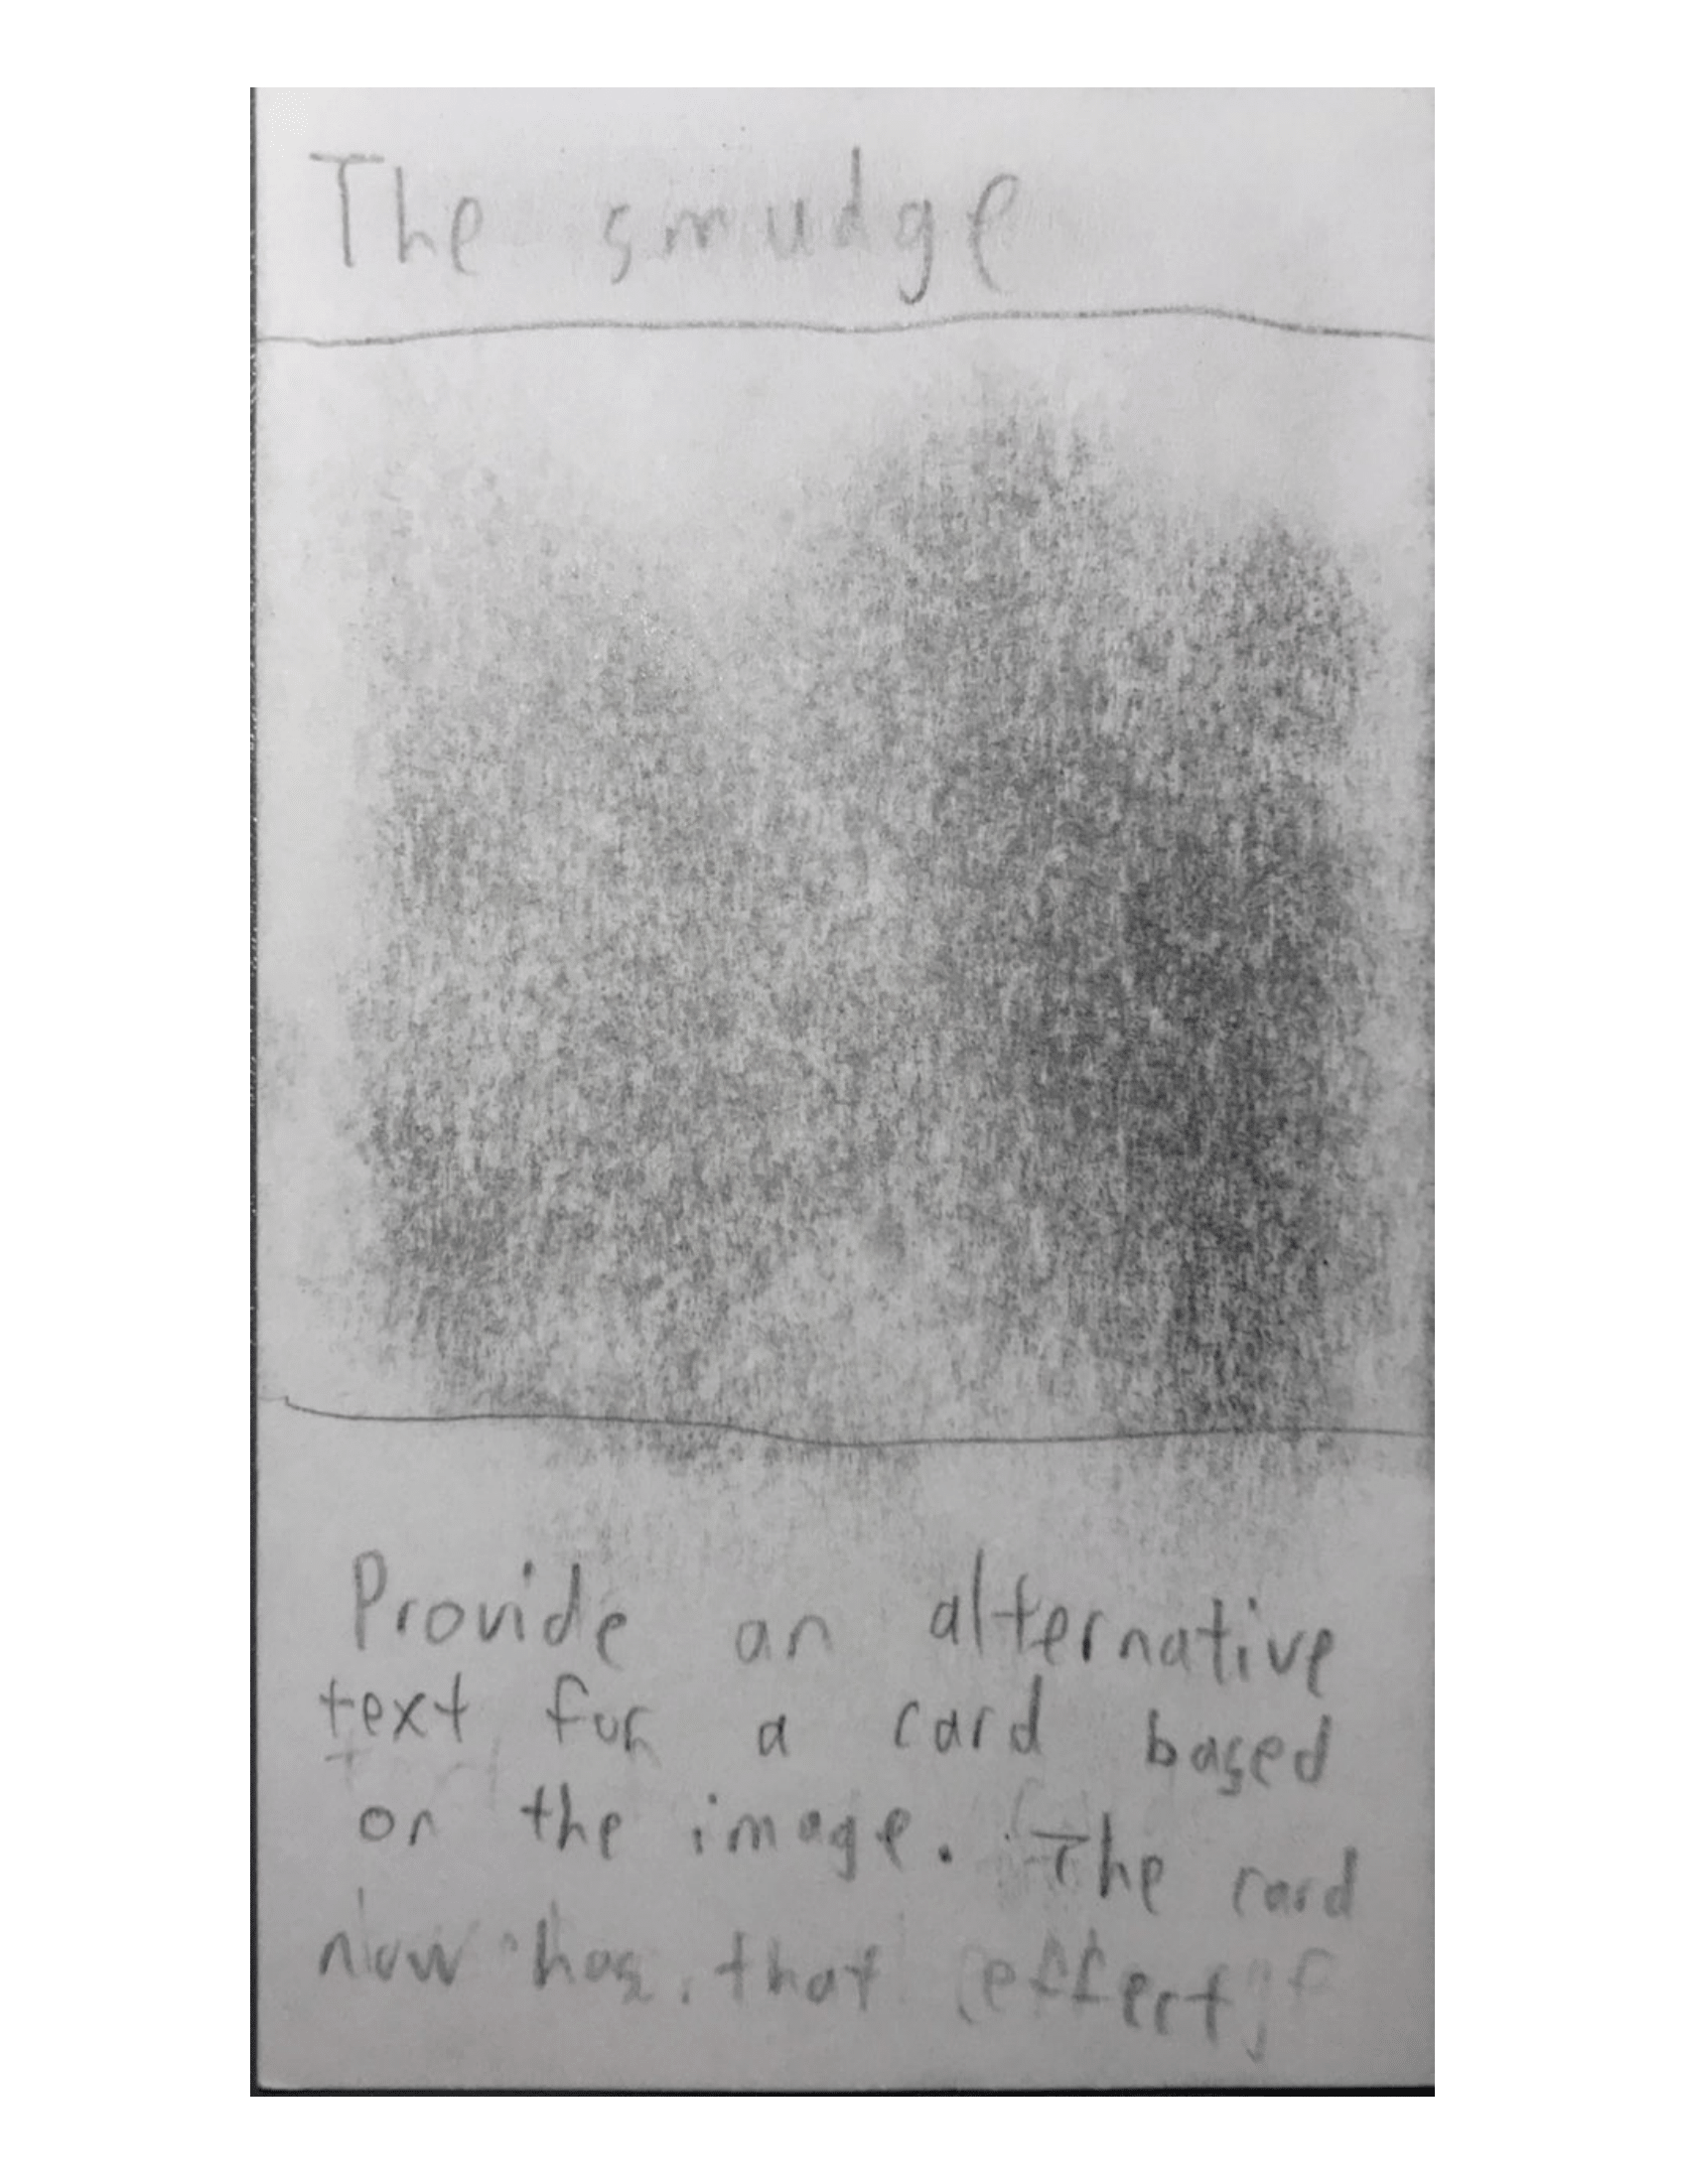 The smudge
Provide an alternative
text for a card based
on the image. The card
now has that effect